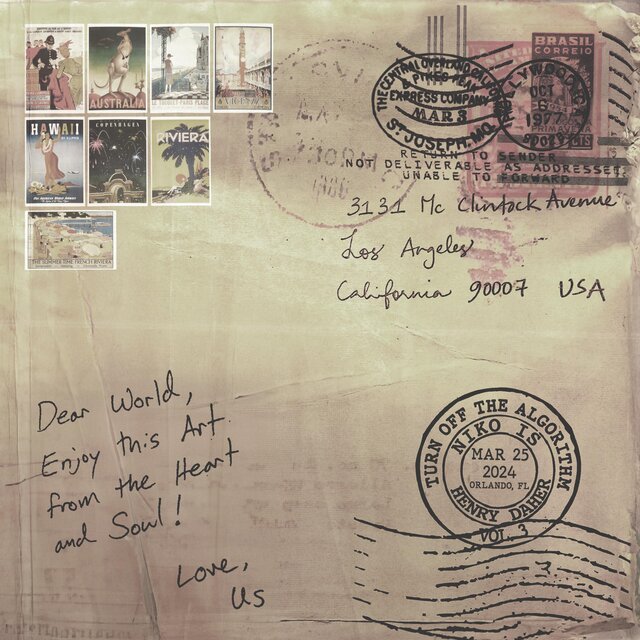 AUSTRALIA
LE TOUQUET-PARIS-PLAGE
HAWAII
COPENHAGEN
RIVIERA
THE SUMMER-TIME FRENCH RIVIERA
BRASIL
CORREIO
PRIMAVERA
THE CENTRAL OVERLAND
PIKES PEAK
EXPRESS COMPANY
MAR 3
ST. JOSEPH, MO.
OCT
6
1977
RETURN TO SENDER
NOT DELIVERABLE AS ADDRESSED
UNABLE TO FORWARD
3131 Mc Clintock Avenue
Los Angeles
California 90007 USA
Dear World,
Enjoy this Art
from the Heart
and Soul!
Love,
Us
TURN OFF THE ALGORITHM
NIKO IS
MAR 25
2024
ORLANDO, FL
HENRY DAHER
VOL. 3